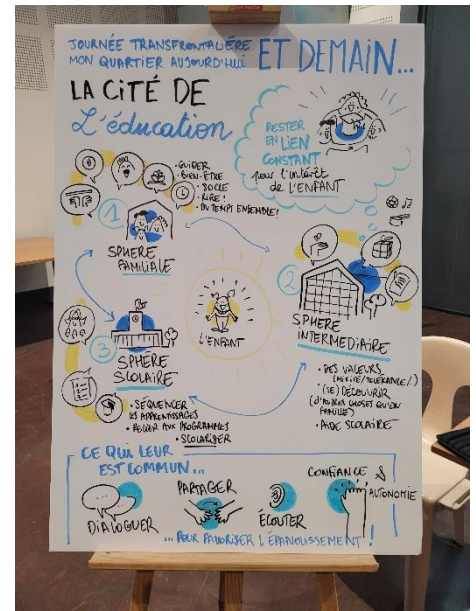 JOURNÉE TRANSFRONTALIÈRE
MON QUARTIER AUJOURD'HUI
ET DEMAIN...
LA CITÉ DE
L'éducation
RESTER
EN LIEN
CONSTANT
pour l'intérêt
de L'ENFANT
• GUIDER
• BIEN-ÊTRE
• SOCLE
• RIRE !
• DU TEMPS ENSEMBLE !
1
SPHERE
FAMILIALE
2
SPHERE
INTERMEDIAIRE
• DES VALEURS
(MIXITÉ/TOLÉRANCE/)
• (SE) DÉCOUVRIR
(D'AUTRES CHOSES QU'EN
FAMILLE)
• AIDE SCOLAIRE
L'ENFANT
3
SPHÈRE
SCOLAIRE
• SÉQUENCER
LES APPRENTISSAGES
AUX PROGRAMMES
• SCOLARISER
CE QUI LEUR
EST COMMUN...
DIALOGUER
PARTAGER
ÉCOUTER
CONFIANCE &
AUTONOMIE
... POUR FAVORISER L'ÉPANOUISSEMENT !